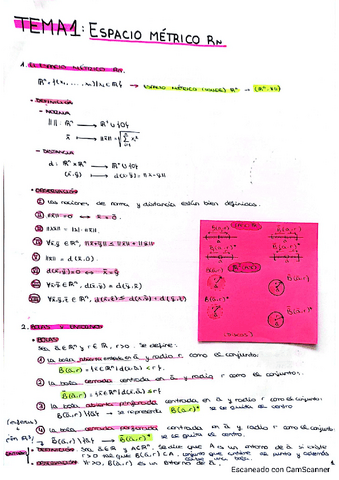 TEMA 1: ESPACIO MÉTRICO Rn
1. EL ESPACIO MÉTRICO Rn.
Rⁿ = {(x₁, ..., xₙ)/xᵢ ∈ R} → ESPACIO MÉTRICO Rⁿ → (Rⁿ, d)
• DEFINICIÓN
- NORMA
|| ||: Rⁿ → R⁺ ∪ {0}
x̄ → ||x̄|| =
- DISTANCIA
d: Rⁿ × Rⁿ → R⁺ ∪ {0}
(x̄, ȳ) → d(x̄, ȳ) = ||x̄ - ȳ||
• OBSERVACIÓN
Las nociones de norma y distancia están bien definidas.
||x̄|| = 0 ⟺ x̄ = 0̄.
||λx̄|| = |λ|·||x̄||.
∀x̄, ȳ ∈ Rⁿ, ||x̄+ȳ|| ≤ ||x̄|| + ||ȳ||
||x̄|| = d(x̄, 0̄).
d(x̄, ȳ) = 0 ⟺ x̄ = ȳ
∀x̄, ȳ ∈ Rⁿ, d(x̄, ȳ) = d(ȳ, x̄)
∀x̄, ȳ, z̄ ∈ Rⁿ, d(x̄, z̄) ≤ d(x̄, ȳ) + d(ȳ, z̄)
B(a,r)
B(a,r)*
B(ā,r)
B(ā,r)*
2. BOLAS Y ENTORNOS
• BOLAS
Sea ā ∈ Rⁿ y r ∈ R, r>0. Se define:
① La bola abierta centrada en ā y radio r como el conjunto:
B(ā,r) = {x̄ ∈ Rⁿ / d(x̄,ā) < r}.
② La bola cerrada centrada en ā y radio r como el conjunto:
B̄(ā,r) = {x̄ ∈ Rⁿ / d(x̄,ā) ≤ r}
③ La bola abierta perforada centrada en ā y radio r como el conjunto
B(ā,r) \ {ā} → se representa B(ā,r)* se le quita el centro
④ La bola cerrada perforada centrada en ā y radio r como el conjunto
B̄(ā,r) \ {ā} → B̄(ā,r)* se le quita el centro.
(esferas)
en R³
• DEFINICIÓN: Sea ā ∈ Rⁿ y A ⊆ Rⁿ. Se dice que A es un entorno de ā si existe
r > 0 tal que B(ā,r) ⊆ A.
• OBSERVACIÓN: ∀r>0, B(ā,r) es un entorno de ā.
Escaneado con CamScanner